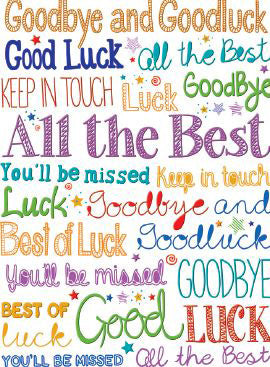 Goodbye and Goodluck
Good Luck all the Best
KEEP IN TOUCH Luck GoodBye
All the Best
You'll be missed Keep in touch
Luck Goodbye and
Best of Luck Goodluck
You'll be missed GOODBYE
BEST OF luck Good LUCK
YOU'LL BE MISSED All the Best